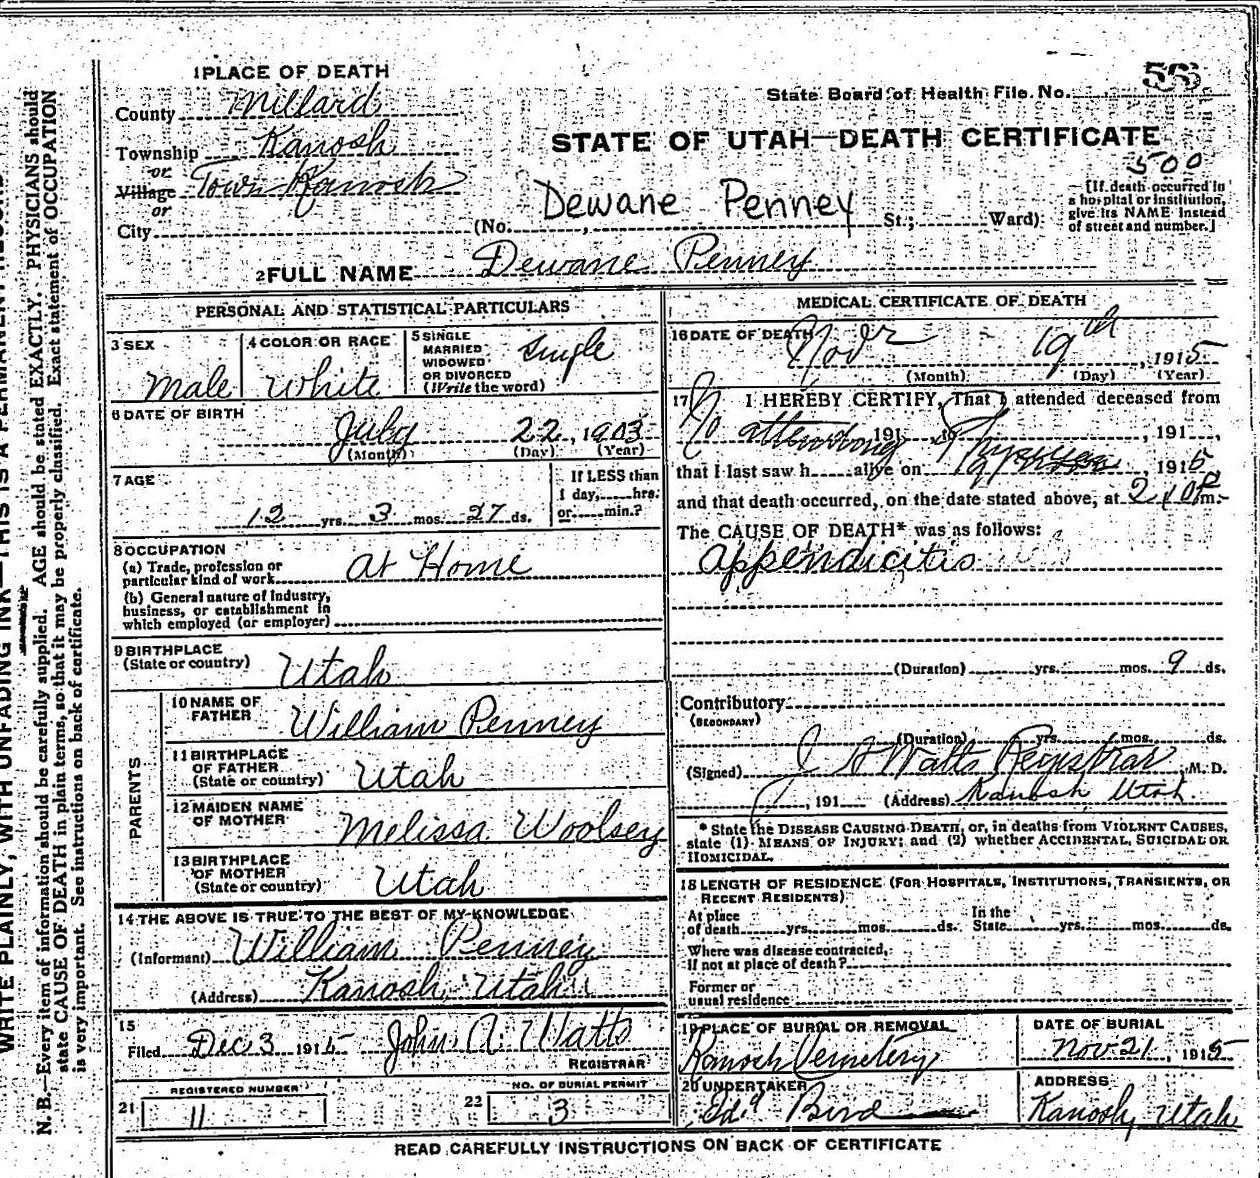 1 PLACE OF DEATH
County Millard
Township Kanosh
or
Village Town Kanosh
or
City
State Board of Health File No. 56
STATE OF UTAH—DEATH CERTIFICATE
500
Dewane Penney
(No. St.; Ward)
[If death occurred in
a hospital or institution,
give its NAME instead
of street and number.]
2 FULL NAME Dewane Penney
PERSONAL AND STATISTICAL PARTICULARS
3 SEX
Male
4 COLOR OR RACE
White
5 SINGLE
MARRIED
WIDOWED
OR DIVORCED
(Write the word)
Single
6 DATE OF BIRTH
July 22, 1903
(Month) (Day) (Year)
7 AGE
12 yrs. 3 mos. 27 ds.
If LESS than
1 day, hrs.
or min.?
8 OCCUPATION
(a) Trade, profession or
particular kind of work At Home
(b) General nature of industry,
business, or establishment in
which employed (or employer)
9 BIRTHPLACE
(State or country) Utah
PARENTS
10 NAME OF
FATHER William Penney
11 BIRTHPLACE
OF FATHER
(State or country) Utah
12 MAIDEN NAME
OF MOTHER Melissa Woolsey
13 BIRTHPLACE
OF MOTHER
(State or country) Utah
14 THE ABOVE IS TRUE TO THE BEST OF MY KNOWLEDGE
(Informant) William Penney
(Address) Kanosh, Utah
15
Filed Dec 3 1915 John A. Watts
REGISTRAR
REGISTERED NUMBER
21 11
NO. OF BURIAL PERMIT
22 3
MEDICAL CERTIFICATE OF DEATH
16 DATE OF DEATH Novr 19th, 1915
(Month) (Day) (Year)
17 I HEREBY CERTIFY, That I attended deceased from
No attending 191 to Physician, 191,
that I last saw h alive on , 1915,
and that death occurred, on the date stated above, at 2/10 P m.
The CAUSE OF DEATH* was as follows:
Appendicitis
(Duration) yrs. mos. 9 ds.
Contributory
(SECONDARY)
(Duration) yrs. mos. ds.
(Signed) J A Watts Registrar, M. D.
, 191 (Address) Kanosh Utah
* State the DISEASE CAUSING DEATH, or, in deaths from VIOLENT CAUSES,
state (1) MEANS OF INJURY; and (2) whether ACCIDENTAL, SUICIDAL OR
HOMICIDAL.
18 LENGTH OF RESIDENCE (FOR HOSPITALS, INSTITUTIONS, TRANSIENTS, OR
RECENT RESIDENTS)
At place
of death yrs. mos. ds.
In the
State yrs. mos. ds.
Where was disease contracted,
if not at place of death?
Former or
usual residence
19 PLACE OF BURIAL OR REMOVAL
Kanosh Cemetery
DATE OF BURIAL
Nov 21, 1915
20 UNDERTAKER
Bird
ADDRESS
Kanosh, Utah
READ CAREFULLY INSTRUCTIONS ON BACK OF CERTIFICATE
WRITE PLAINLY, WITH UNFADING INK—THIS IS A PERMANENT RECORD
N. B.—Every item of information should be carefully supplied. AGE should be stated EXACTLY. PHYSICIANS should
state CAUSE OF DEATH in plain terms, so that it may be properly classified. Exact statement of OCCUPATION
is very important. See instructions on back of certificate.